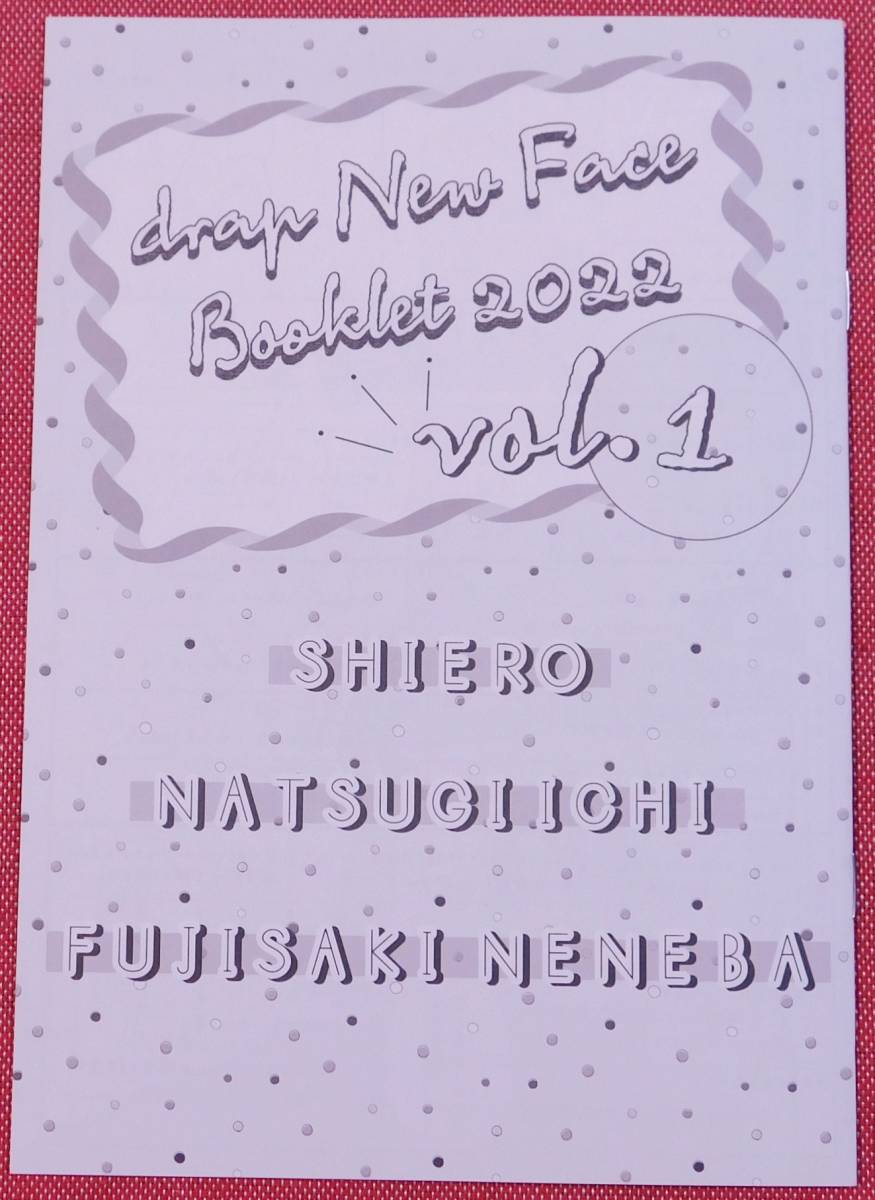 drap New Face
Booklet 2022
vol.1
SHIERO
NATSUGI ICHI
FUJISAKI NENEBA